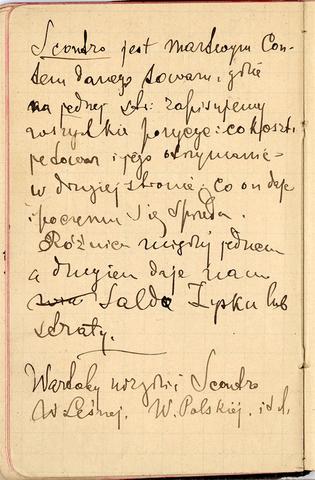 Scontro jest martwym Con-
tem danego towaru, gdzie
na jednej str: zapisujemy
wszystkie pozycje: co koszt.
je towar i jego otrzymanie
w drugiej stronie, co on daje
i poczemu się sprzeda.
Różnica między jednem
a drugiem daje nam
Saldo Zysku lub
straty.
Wartoby urządzić Scontro
W. Leśnej, W. Polskiej, i t d.